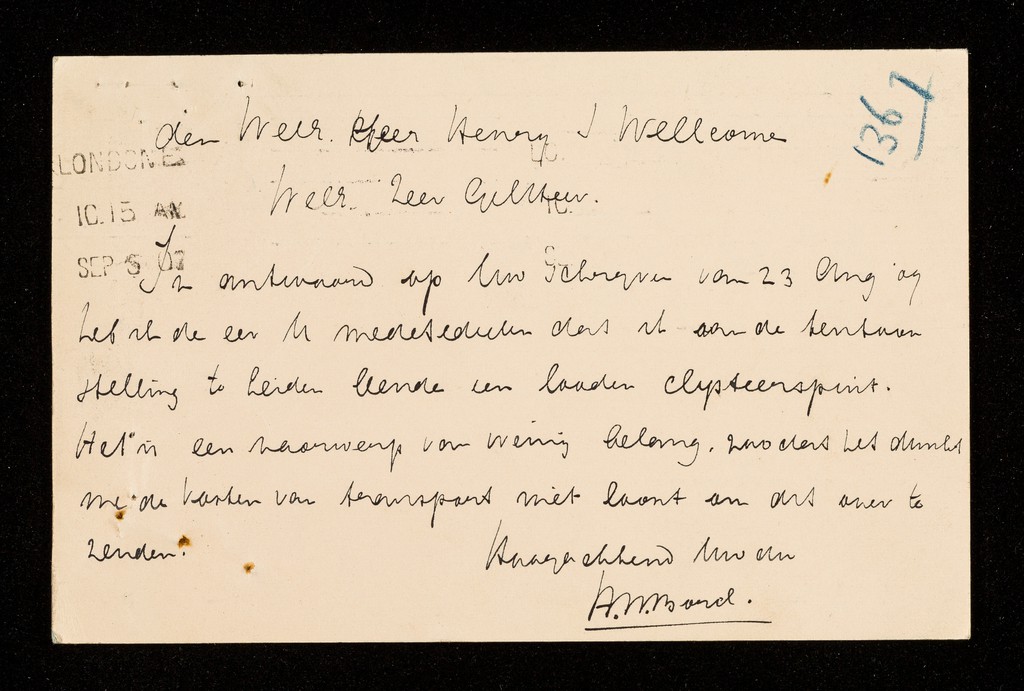 1367
den WelE. Heer Henry S Wellcome
LONDON E.
WelE. Zeer Gel Heer.
10.15 AM
SEP 5 07
In antwoord op Uw Schrijven van 23 Aug jl
heb ik de eer U mede te deelen dat ik aan de tentoon
stelling te Leiden leende een looden clysteerspuit.
Het is een voorwerp van weinig belang, zoodat het dunkt
me de kosten van transport niet loont om dit over te
zenden.
Hoogachtend Uw dw